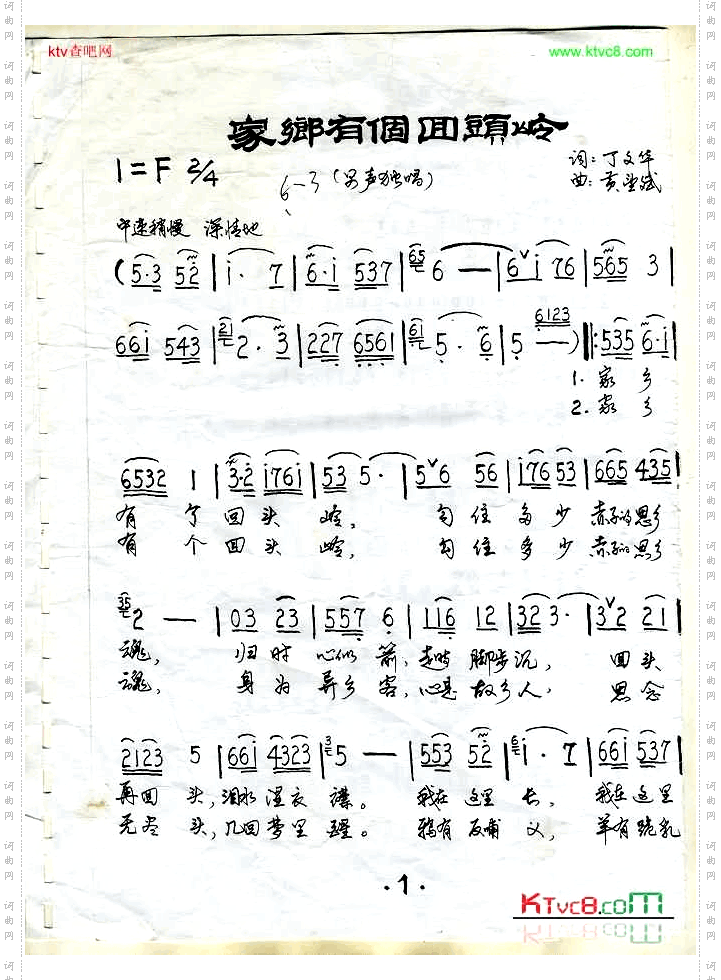 ktv查吧网 www.ktvc8.com
家鄉有個回頭岭
1=F 2/4
6–3 (男声独唱)
词:丁文华
曲:黄
中速稍慢 深情地
(5·3 52 | i· 7 | 6·i 537 | 65 6 — | 6 i 76 | 565 3 |
66i 543 | 21 2· 3 | 227 6561 | 61 5· 6 | 5 — 6123 ) |: 535 6·i |
1. 家 乡
2. 家 乡
6532 1 | 3·2 i76i | 53 5· | 5 6 56 | i76 53 | 665 435 |
有 个 回 头 岭, 勾 住 多 少 赤子的 思乡
有 个 回 头 岭, 勾 住 多 少 赤子的 思乡
2 — | 03 23 | 5577 6 | 116 12 | 323 3· | 3 2 21 |
魂, 归 时 心似 箭, 走时 脚步 沉, 回头
魂, 身 为 异乡 客, 心是 故乡 人, 思念
2123 5 | 66i 4323 | 3 5 — | 553 52 | 6 i· 7 | 66i 537 |
再回 头, 泪水 湿衣 襟。 我在 这里 长, 我在 这里
无尽 头, 几回 梦里 醒。 鸦有 反哺 义, 羊有 跪乳
·1·
KTvc8.com
词曲网